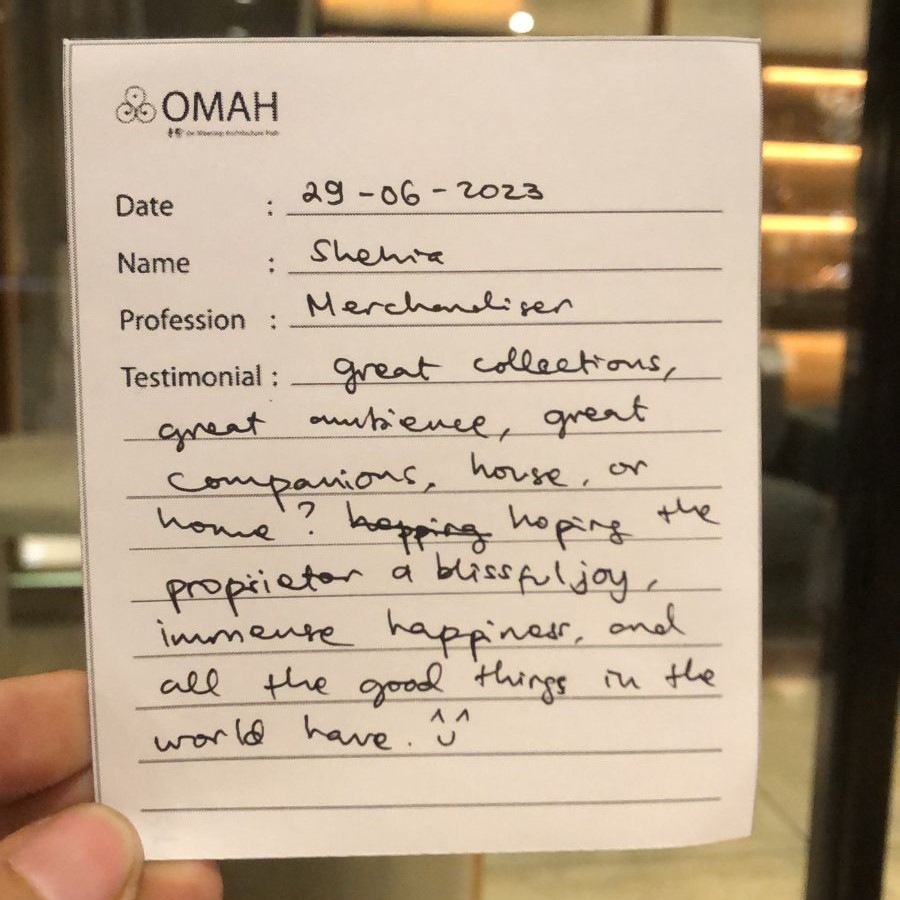 OMAH
Date : 29-06-2023
Name : Shehia
Profession : Merchandiser
Testimonial : great collections,
great ambience, great
companions, house, or
home? hopping hoping the
proprietor a blissful joy,
immense happiness, and
all the good things in the
world have. ^ ^